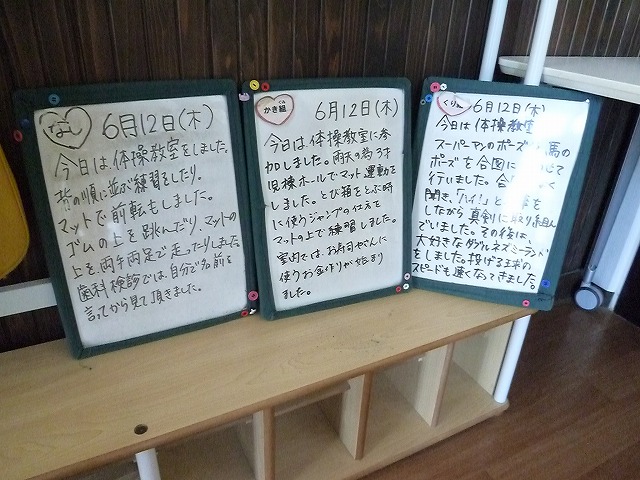 なし
6月12日(木)
今日は、体操教室をしました。
背の順に並ぶ練習をしたり、
マットで前転もしました。
ゴムの上を跳んだり、マットの
上を両手両足で走ったりしました。
歯科検診では、自分で名前を
言ってから見て頂きました。
かき組
6月12日(木)
今日は、体操教室に参
加しました。雨天の為3才
児棟ホールでマット運動を
しました。とび箱をとぶ時
に使うジャンプの仕方を
マットの上で練習しました。
室内では、お寿司やさんに
使うお金作りが始まり
ました。
くり組
6月12日(木)
今日は 体操教室
スーパーマンのポーズ 馬の
ポーズを合図に
行いました。
聞き、「ハイ!」と
しながら真剣に取り組ん
でいました。その後は、
大好きなダブルネズミーランド
をしました。投げる球の
スピードも速くなってきました。